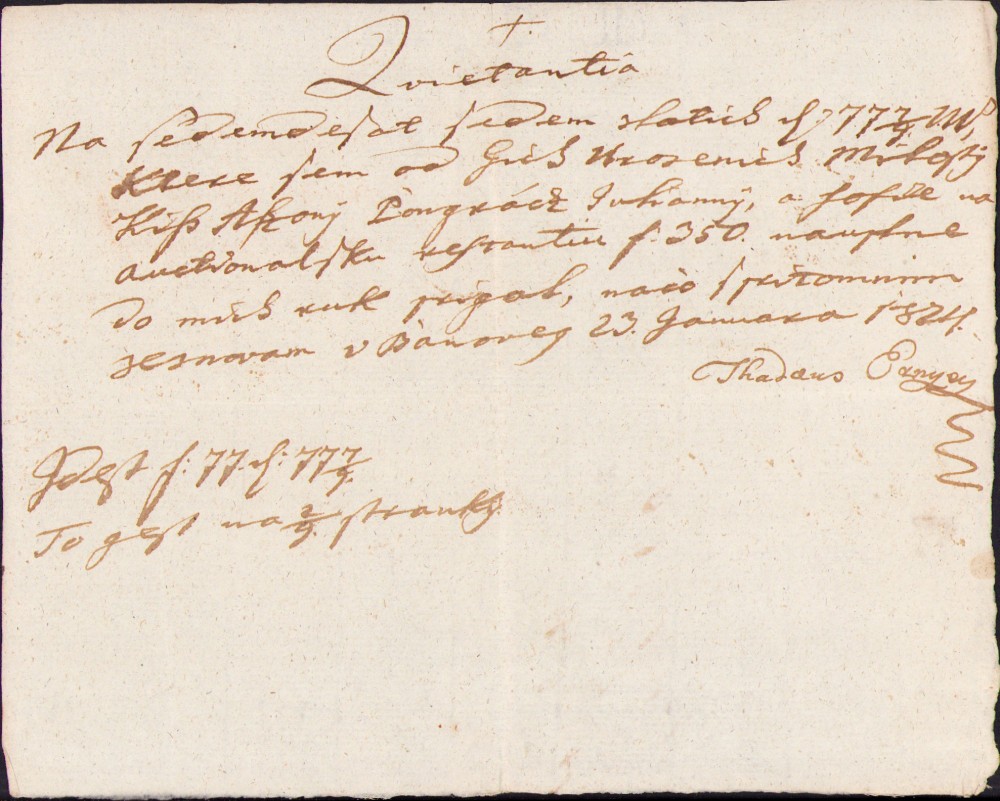 Qvietantia
Na sedemdesat sedem zlatich xf 77 7/9 W,
Ktere sem od Gich Urozenich Milosti
Kiss Aszony Pongrácz Julianny, a sofize na
auctionalsku restantiu f. 350. nauplne
do mich ruk prigal, načo spritomnim
zeznavam v Banoveg 23. Januara 1824.
Thadæus Ernyey
Idest f: 77. xf: 77 7/9.
To gest na 2/9. stranky